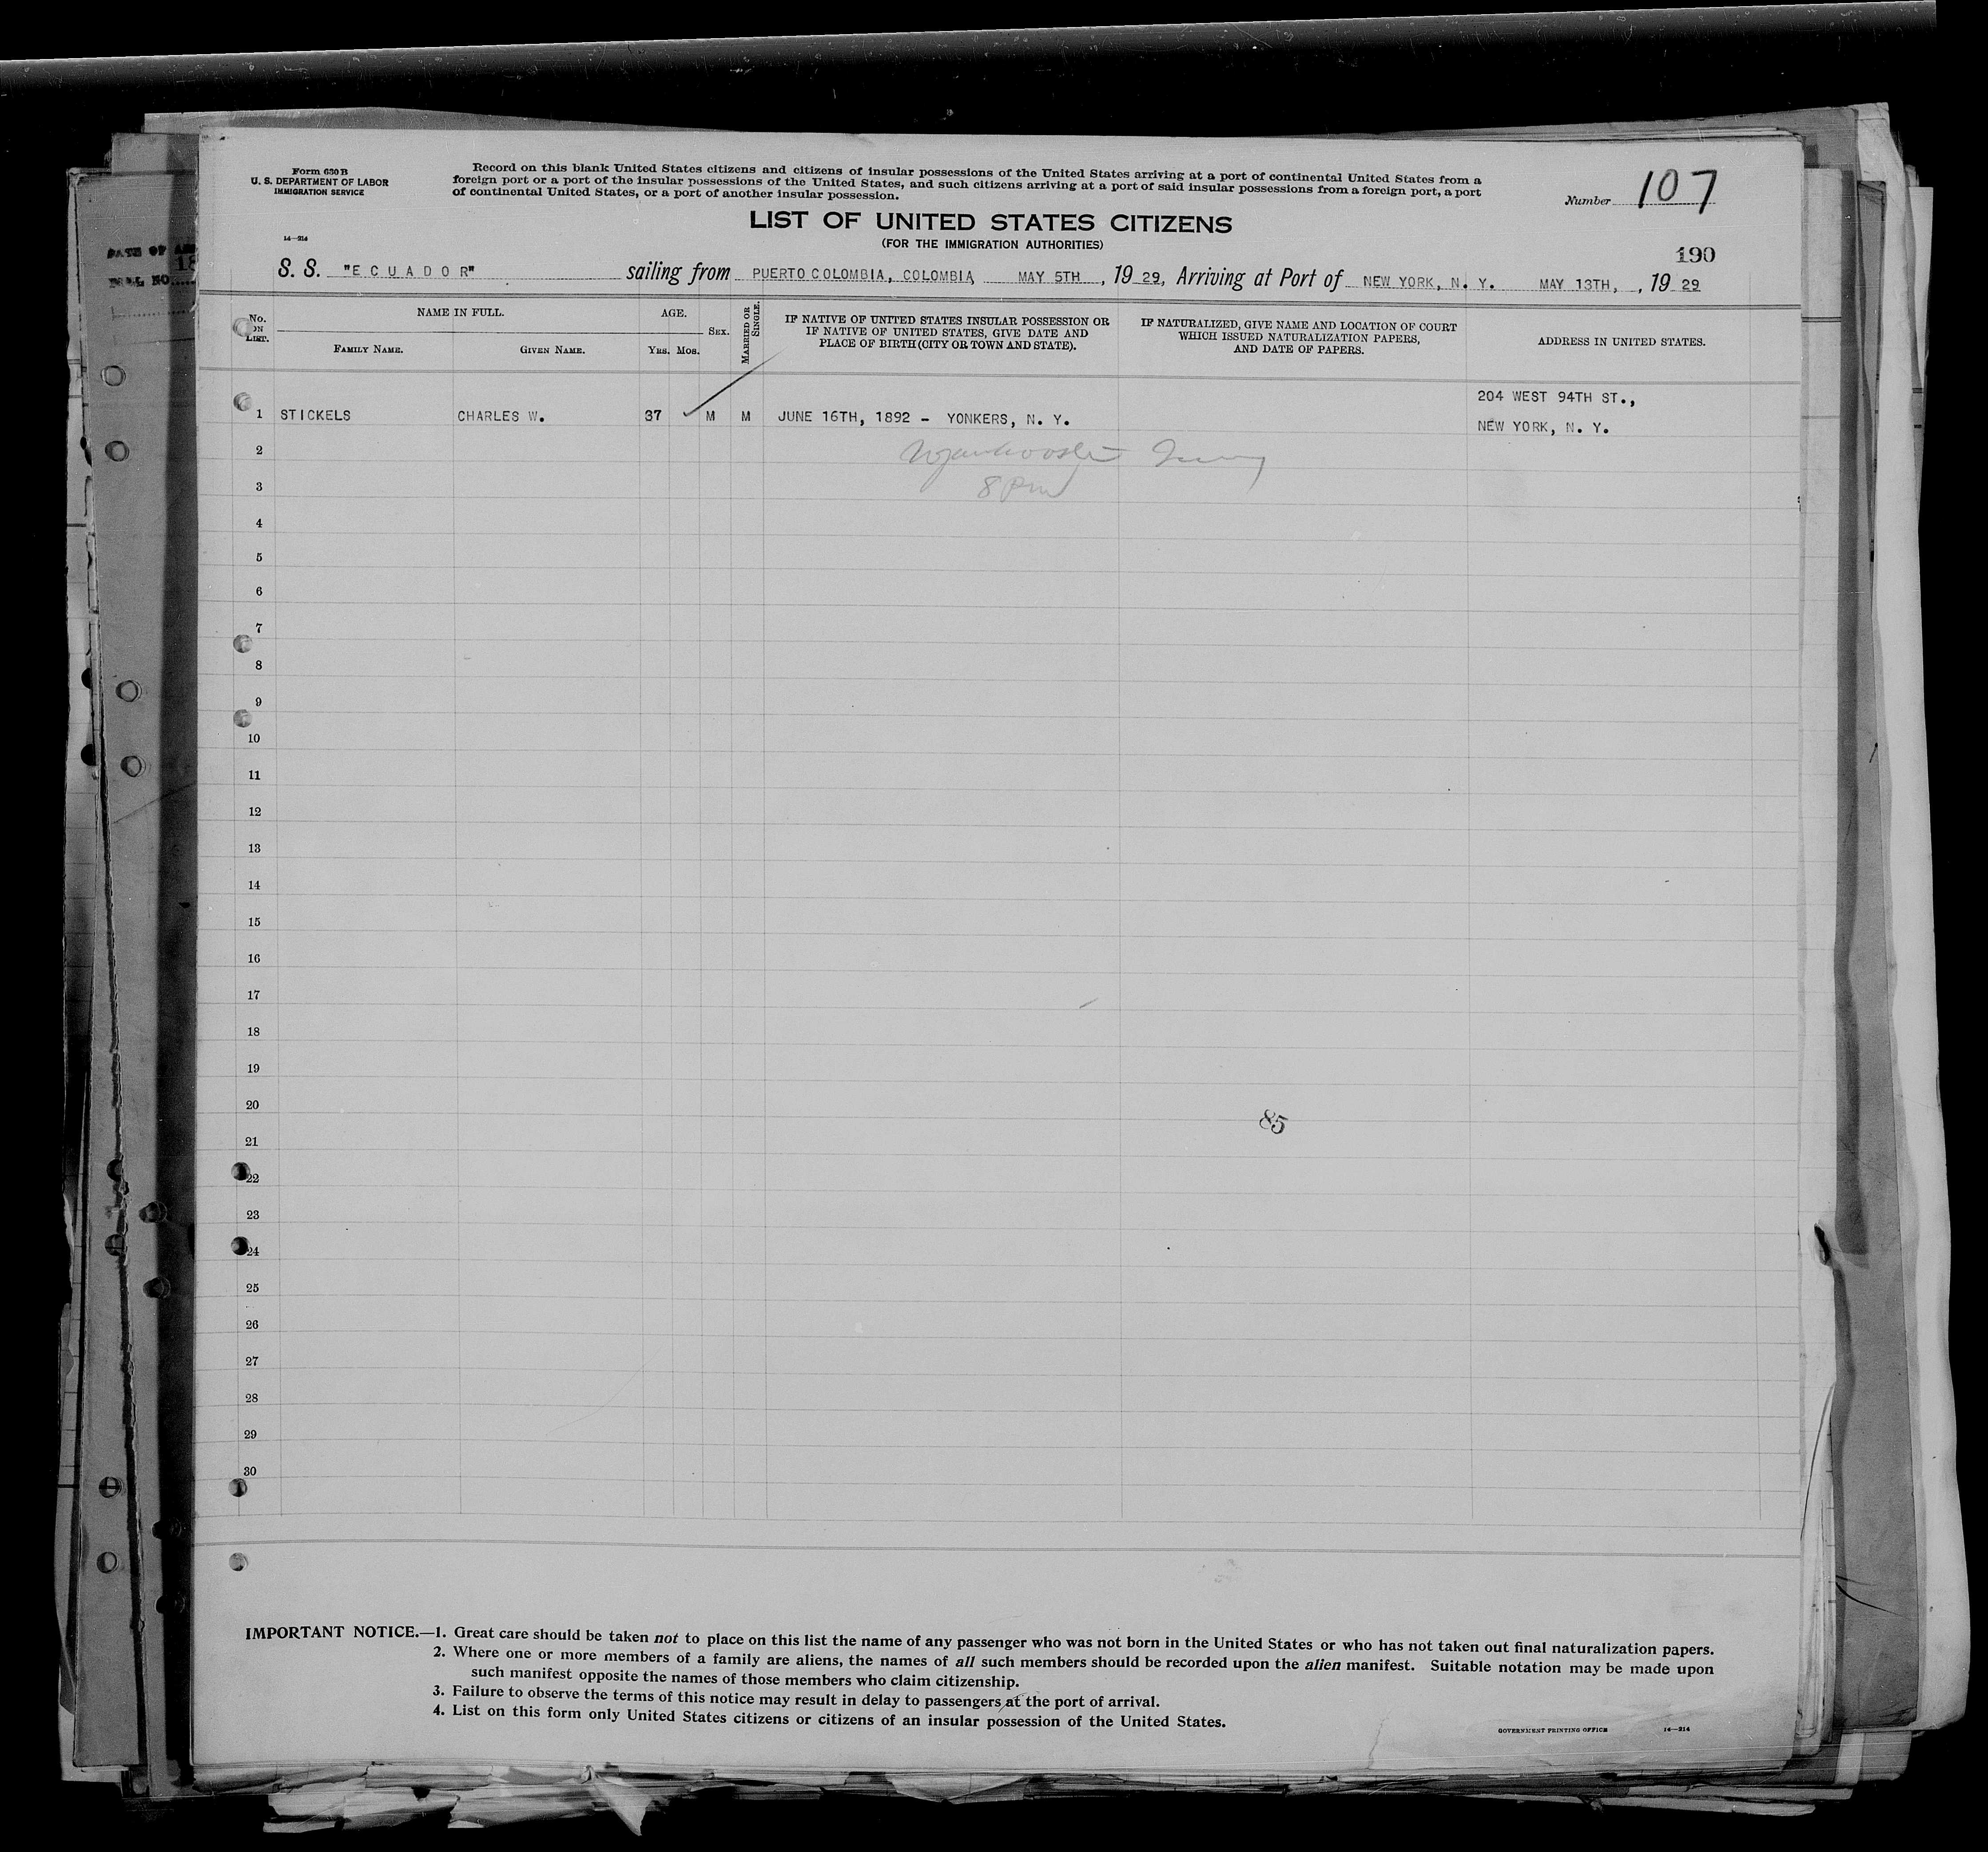 Form 630 B
U. S. DEPARTMENT OF LABOR
IMMIGRATION SERVICE
Record on this blank United States citizens and citizens of insular possessions of the United States arriving at a port of continental United States from a
foreign port or a port of the insular possessions of the United States, and such citizens arriving at a port of said insular possessions from a foreign port, a port
of continental United States, or a port of another insular possession.
Number 107
LIST OF UNITED STATES CITIZENS
(FOR THE IMMIGRATION AUTHORITIES)
14—214
190
S. S. "E C U A D O R" sailing from PUERTO COLOMBIA, COLOMBIA, MAY 5TH, 19 29, Arriving at Port of NEW YORK, N. Y. MAY 13TH, , 19 29
No. ON LIST.
NAME IN FULL.
FAMILY NAME.
GIVEN NAME.
AGE.
YRS. MOS.
SEX.
MARRIED OR SINGLE.
IF NATIVE OF UNITED STATES INSULAR POSSESSION OR
IF NATIVE OF UNITED STATES, GIVE DATE AND
PLACE OF BIRTH (CITY OR TOWN AND STATE).
IF NATURALIZED, GIVE NAME AND LOCATION OF COURT
WHICH ISSUED NATURALIZATION PAPERS,
AND DATE OF PAPERS.
ADDRESS IN UNITED STATES.
204 WEST 94TH ST.,
1 STICKELS CHARLES W. 37 M M JUNE 16TH, 1892 - YONKERS, N. Y.
NEW YORK, N. Y.
2
3 8 Pm
4
5
6
7
8
9
10
11
12
13
14
15
16
17
18
19
20
85
21
22
23
24
25
26
27
28
29
30
IMPORTANT NOTICE.—1. Great care should be taken not to place on this list the name of any passenger who was not born in the United States or who has not taken out final naturalization papers.
2. Where one or more members of a family are aliens, the names of all such members should be recorded upon the alien manifest. Suitable notation may be made upon
such manifest opposite the names of those members who claim citizenship.
3. Failure to observe the terms of this notice may result in delay to passengers at the port of arrival.
4. List on this form only United States citizens or citizens of an insular possession of the United States.
GOVERNMENT PRINTING OFFICE 14—214